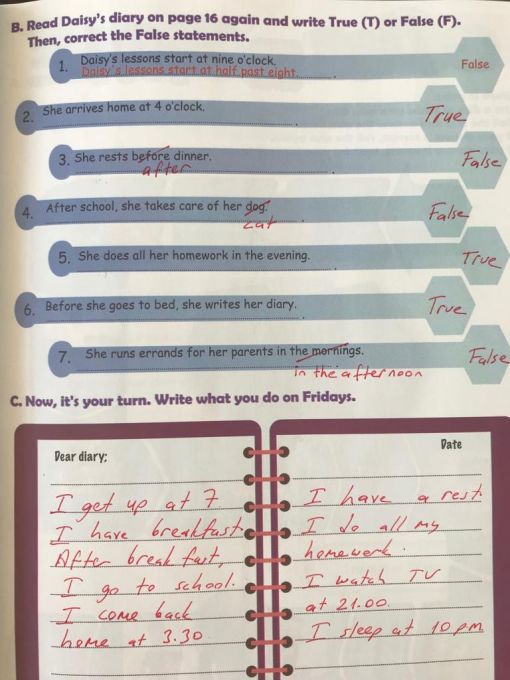 B. Read Daisy's diary on page 16 again and write True (T) or False (F).
Then, correct the False statements.
1. Daisy's lessons start at nine o'clock. False
Daisy's lessons start at half past eight.
2. She arrives home at 4 o'clock. True
3. She rests before dinner. False
after
4. After school, she takes care of her dog. False
cat
5. She does all her homework in the evening. True
6. Before she goes to bed, she writes her diary. True
7. She runs errands for her parents in the mornings. False
in the afternoon
C. Now, it's your turn. Write what you do on Fridays.
Dear diary:
I get up at 7
I have breakfast
After break fast,
I go to school.
I come back
home at 3.30
Date
I have a rest
I do all my
homework.
I watch TV
at 21.00.
I sleep at 10 pm